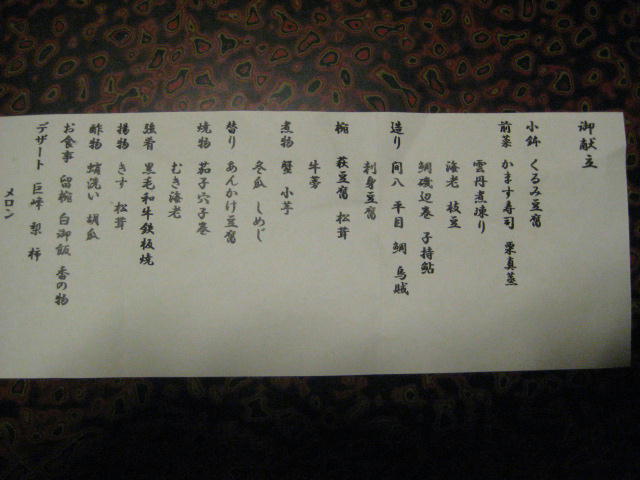 御献立
小鉢 くるみ豆腐
前菜 かます寿司 栗真蒸
雲丹煮凍り
海老 枝豆
鯛磯辺巻 子持鮎
造り 間八 平目 鯛 烏賊
刺身豆腐
椀 萩豆腐 松茸
牛蒡
煮物 蟹 小芋
冬瓜 しめじ
替り あんかけ豆腐
焼物 茄子穴子巻
むき海老
強肴 黒毛和牛鉄板焼
揚物 きす 松茸
酢物 蛸洗い 胡瓜
お食事 留椀 白御飯 香の物
デザート 巨峰 梨 柿
メロン